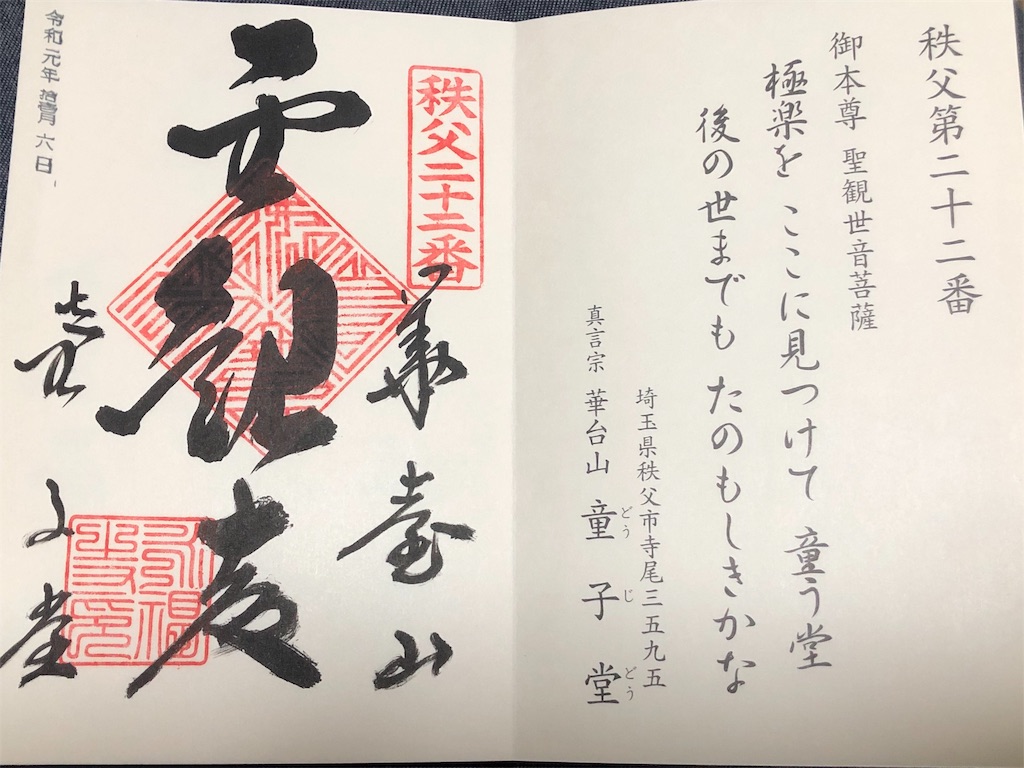 秩父第二十二番
御本尊 聖観世音菩薩
極楽を ここに見つけて 童う堂
後の世までも たのもしきかな
埼玉県秩父市寺尾三五九五
どう じ どう
真言宗 華台山 童子堂
秩父二十二番
華臺山
童子堂
令和元年 拾壹月 六日